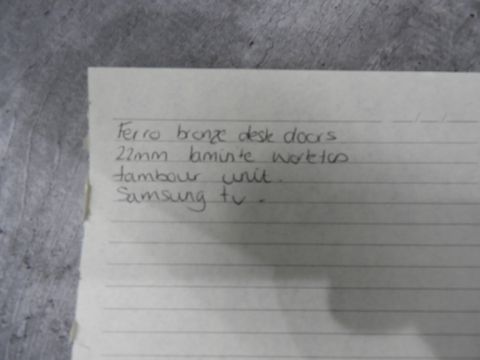 Ferro bronze desk doors
22mm laminte worktop
tambour unit.
Samsung tv.